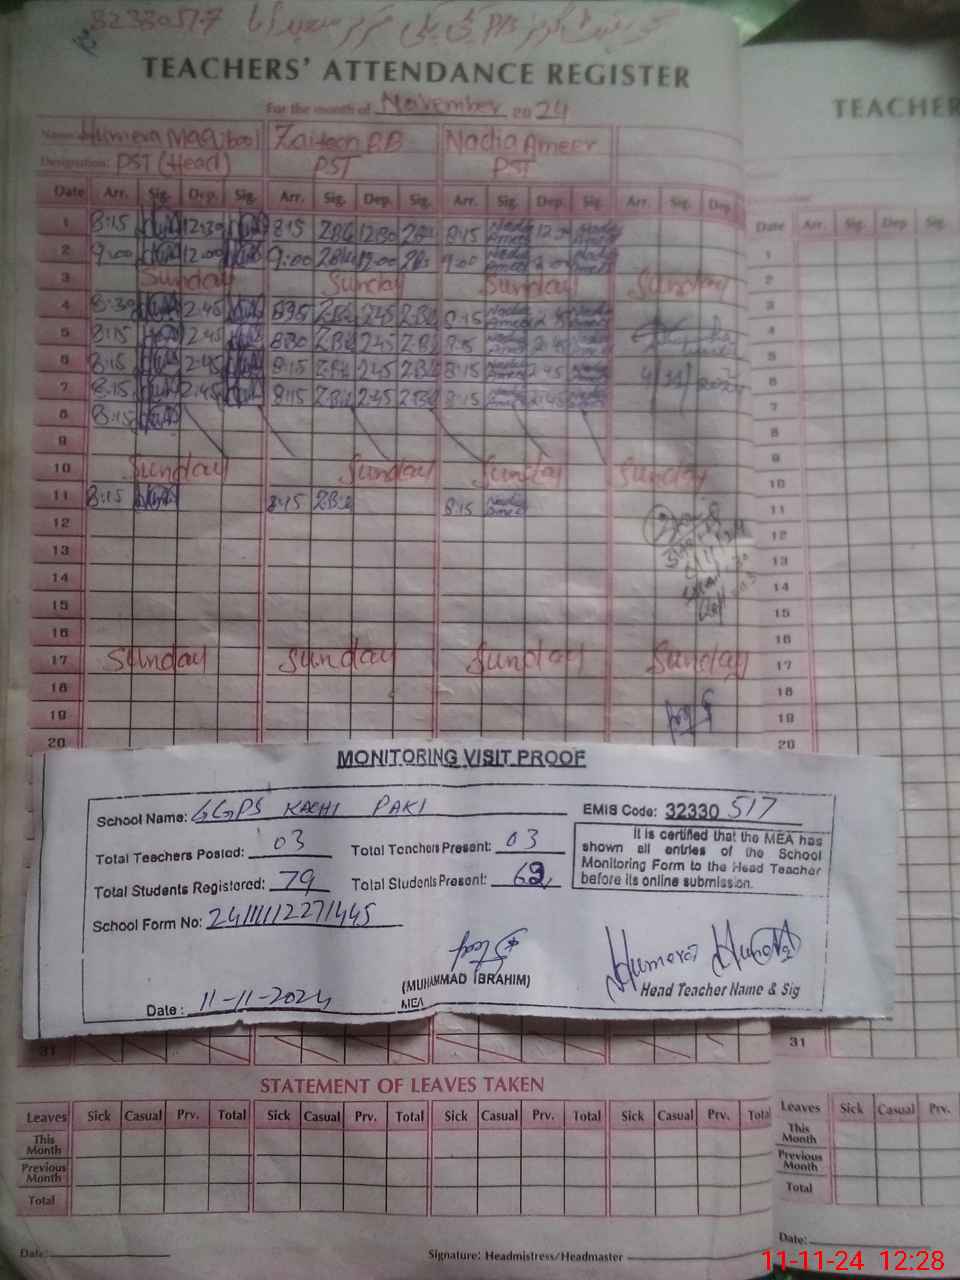 32330517
TEACHERS' ATTENDANCE REGISTER
For the month of November 2024
Name: Humera Maqbool Zaitoon BB Nadia Ameer
Designation: PST (Head) PST PST
Date Arr. Sig. Dep. Sig. Arr. Sig. Dep. Sig. Arr. Sig. Dep. Sig. Arr. Sig. Dep.
1 8:15 12:30 8:15 ZBb 12:30 ZBb 8:15 Nadia Ameer 12:30 Nadia Ameer
2 9:00 12:00 9:00 ZBb 12:00 ZBb 9:00 Nadia Ameer Nadia Ameer
3 Sunday Sunday Sunday Sunday
4 8:30 2:45 ZBb 2:45 ZBb 8:15 Nadia Ameer 2:45 Nadia Ameer
5 8:15 2:45 8:30 ZBb 2:45 ZBb 8:15 Nadia Ameer 2:45 Nadia Ameer
6 8:15 2:45 8:15 ZBb 2:45 ZBb 8:15 Nadia Ameer 2:45 Nadia Ameer
7 8:15 2:45 8:15 ZBb 2:45 ZBb 8:15 Nadia Ameer 2:45 Nadia Ameer
8 8:15
9
10 Sunday Sunday Sunday Sunday
11 8:15 8:15 ZBb 8:15 Nadia Ameer
12
13
14
15
16
17 Sunday Sunday Sunday Sunday
18
19
20
MONITORING VISIT PROOF
School Name: GGPS KACHI PAKI EMIS Code: 32330 517
Total Teachers Posted: 03 Total Teachers Present: 03
Total Students Registered: 79 Total Students Present:
It is certified that the MEA has
shown all entries of the School
Monitoring Form to the Head Teacher
before its online submission.
School Form No: 24111112271445
(MUHAMMAD IBRAHIM)
MEA
Humera
Head Teacher Name & Sig
Date: 11-11-2024
31
STATEMENT OF LEAVES TAKEN
Leaves Sick Casual Prv. Total Sick Casual Prv. Total Sick Casual Prv. Total Sick Casual Prv. Total
This Month
Previous Month
Total
Date: Signature: Headmistress/Headmaster
TEACHER
Date Arr. Sig. Dep. Sig.
1
2
3
4
5
6
7
8
9
10
11
12
13
14
15
16
17
18
19
20
31
Leaves Sick Casual Prv.
This Month
Previous Month
Total
Date:
11-11-24 12:28